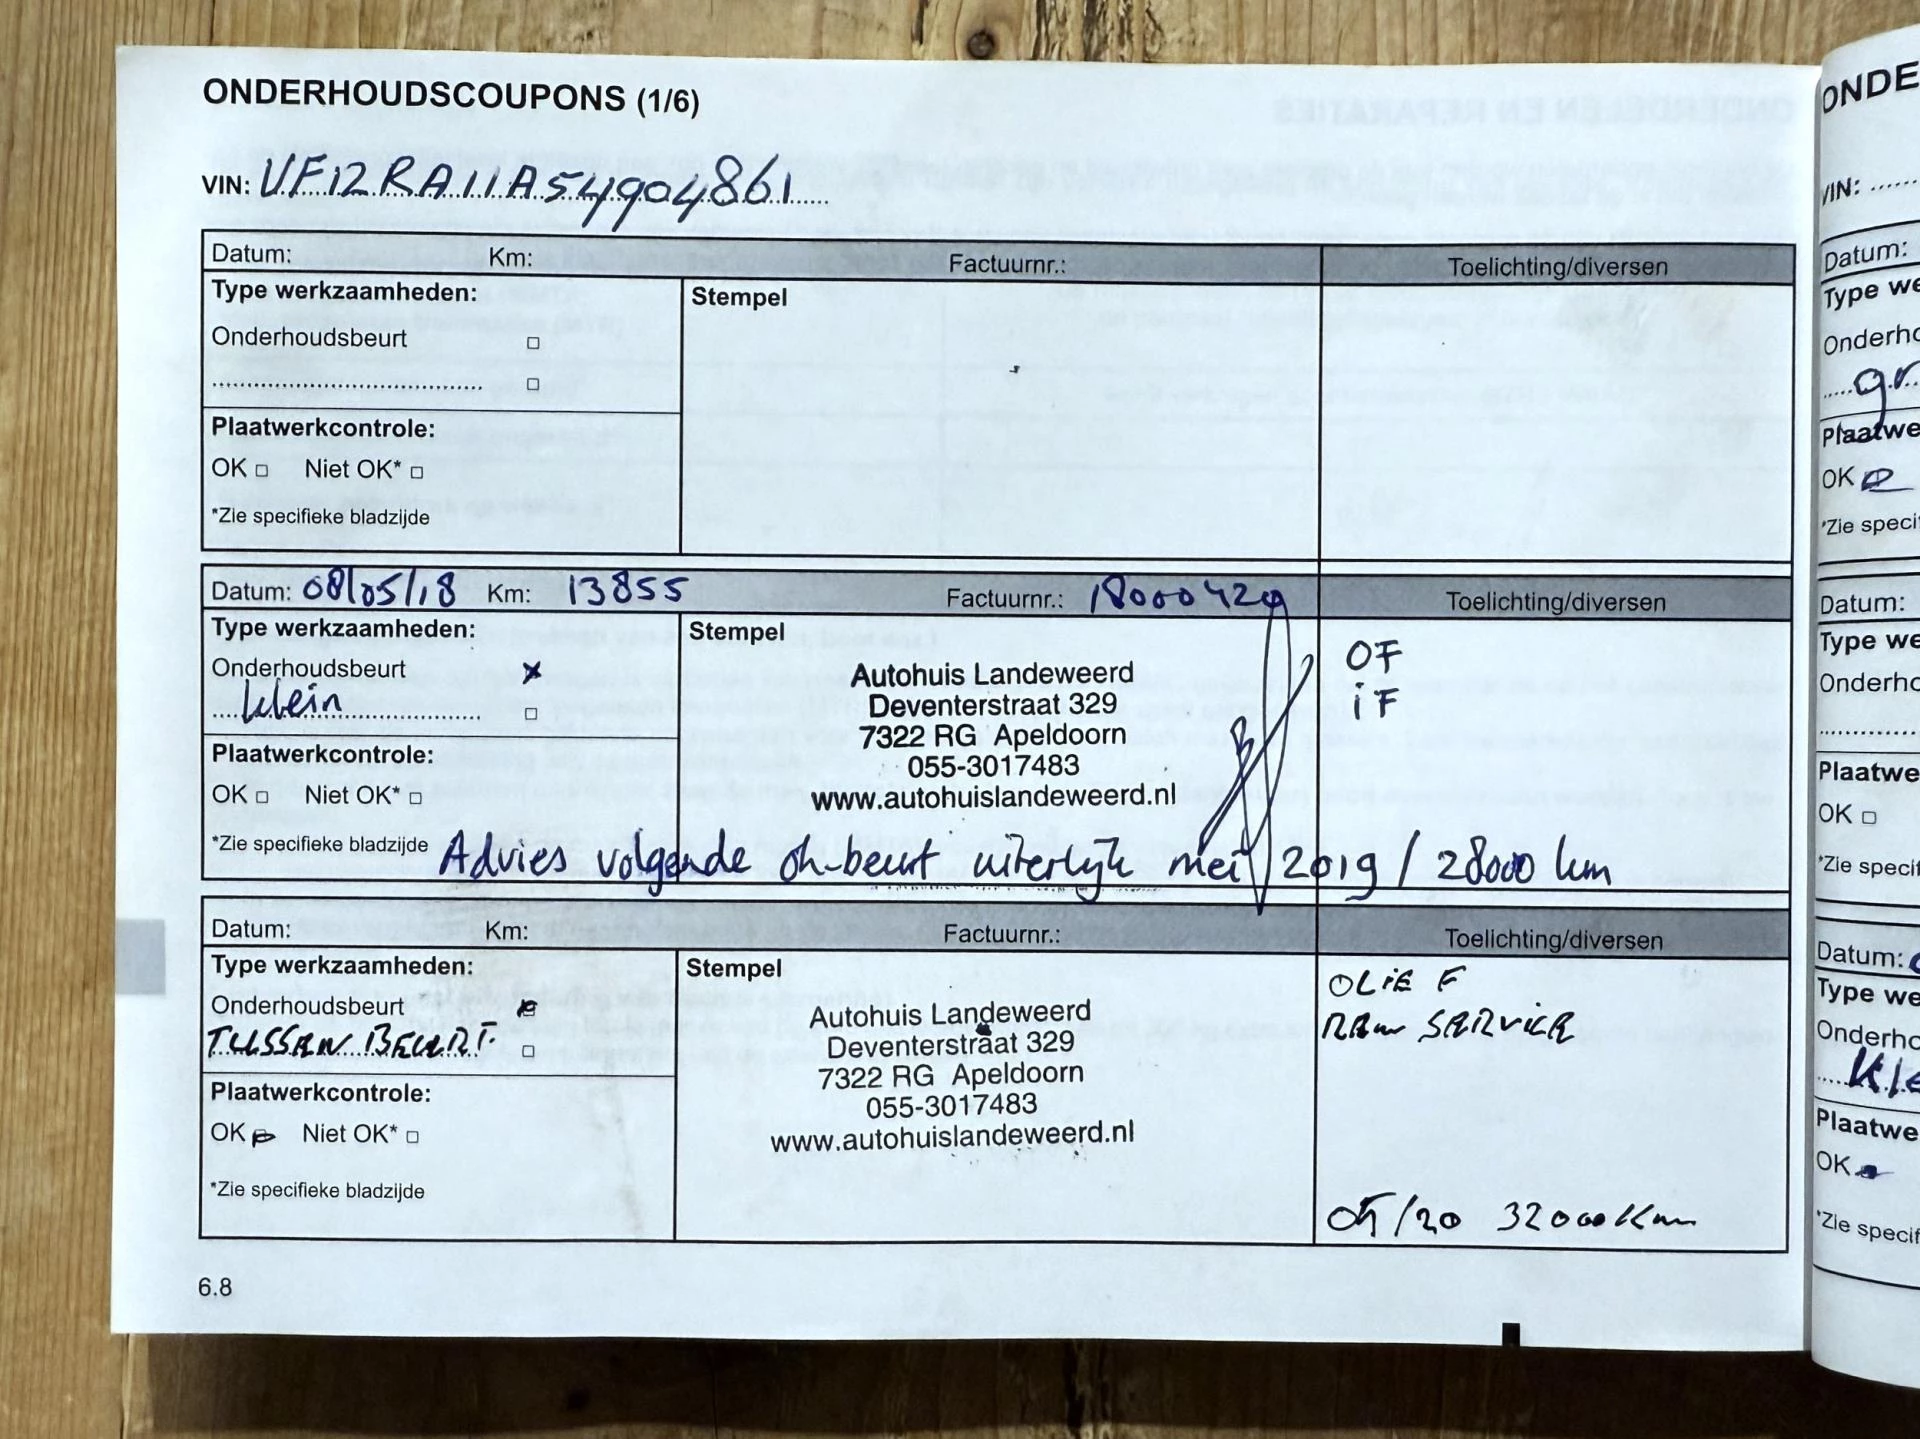 ONDERHOUDSCOUPONS (1/6)
VIN: VF12RA11A54904861
Datum: Km: Factuurnr.: Toelichting/diversen
Type werkzaamheden: Stempel
Onderhoudsbeurt
Plaatwerkcontrole:
OK Niet OK*
*Zie specifieke bladzijde
Datum: 08/05/18 Km: 13855 Factuurnr.: 18000429 Toelichting/diversen
Type werkzaamheden: Stempel
Onderhoudsbeurt x
klein
Plaatwerkcontrole:
OK Niet OK*
*Zie specifieke bladzijde
Autohuis Landeweerd
Deventerstraat 329
7322 RG Apeldoorn
055-3017483
www.autohuislandeweerd.nl
OF
iF
Advies volgende oh-beurt uiterlijk mei 2019 / 28000 km
Datum: Km: Factuurnr.: Toelichting/diversen
Type werkzaamheden: Stempel
Onderhoudsbeurt
TUSSEN BEURT.
Plaatwerkcontrole:
OK Niet OK*
*Zie specifieke bladzijde
Autohuis Landeweerd
Deventerstraat 329
7322 RG Apeldoorn
055-3017483
www.autohuislandeweerd.nl
OLIE F
REM SERVICE
05/20 32000 Km
6.8
ONDE
VIN:
Datum:
Type we
Onderho
gr
Plaatwe
OK
*Zie speci
Datum:
Type we
Onderho
Plaatwe
OK
*Zie specif
Datum:
Type we
Onderho
Kle
Plaatwe
OK
*Zie specif